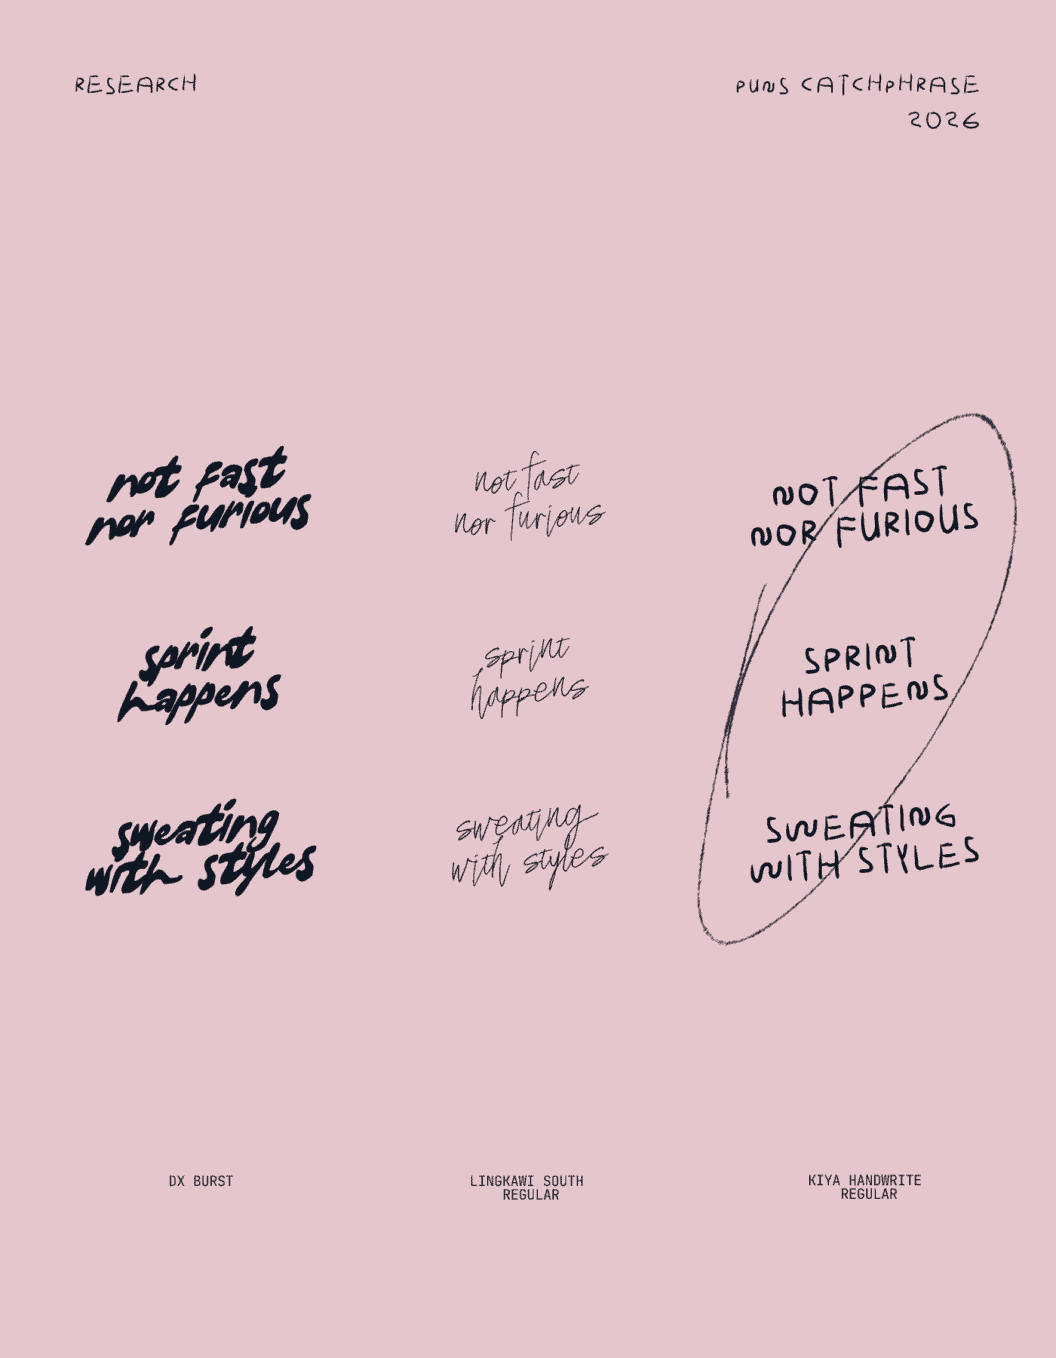 RESEARCH
PUNS CATCHPHRASE
2026
not fast
nor furious
not fast
nor furious
NOT FAST
NOR FURIOUS
sprint
happens
sprint
happens
SPRINT
HAPPENS
sweating
with styles
sweating
with styles
SWEATING
WITH STYLES
DX BURST
LINGKAWI SOUTH
REGULAR
KIYA HANDWRITE
REGULAR